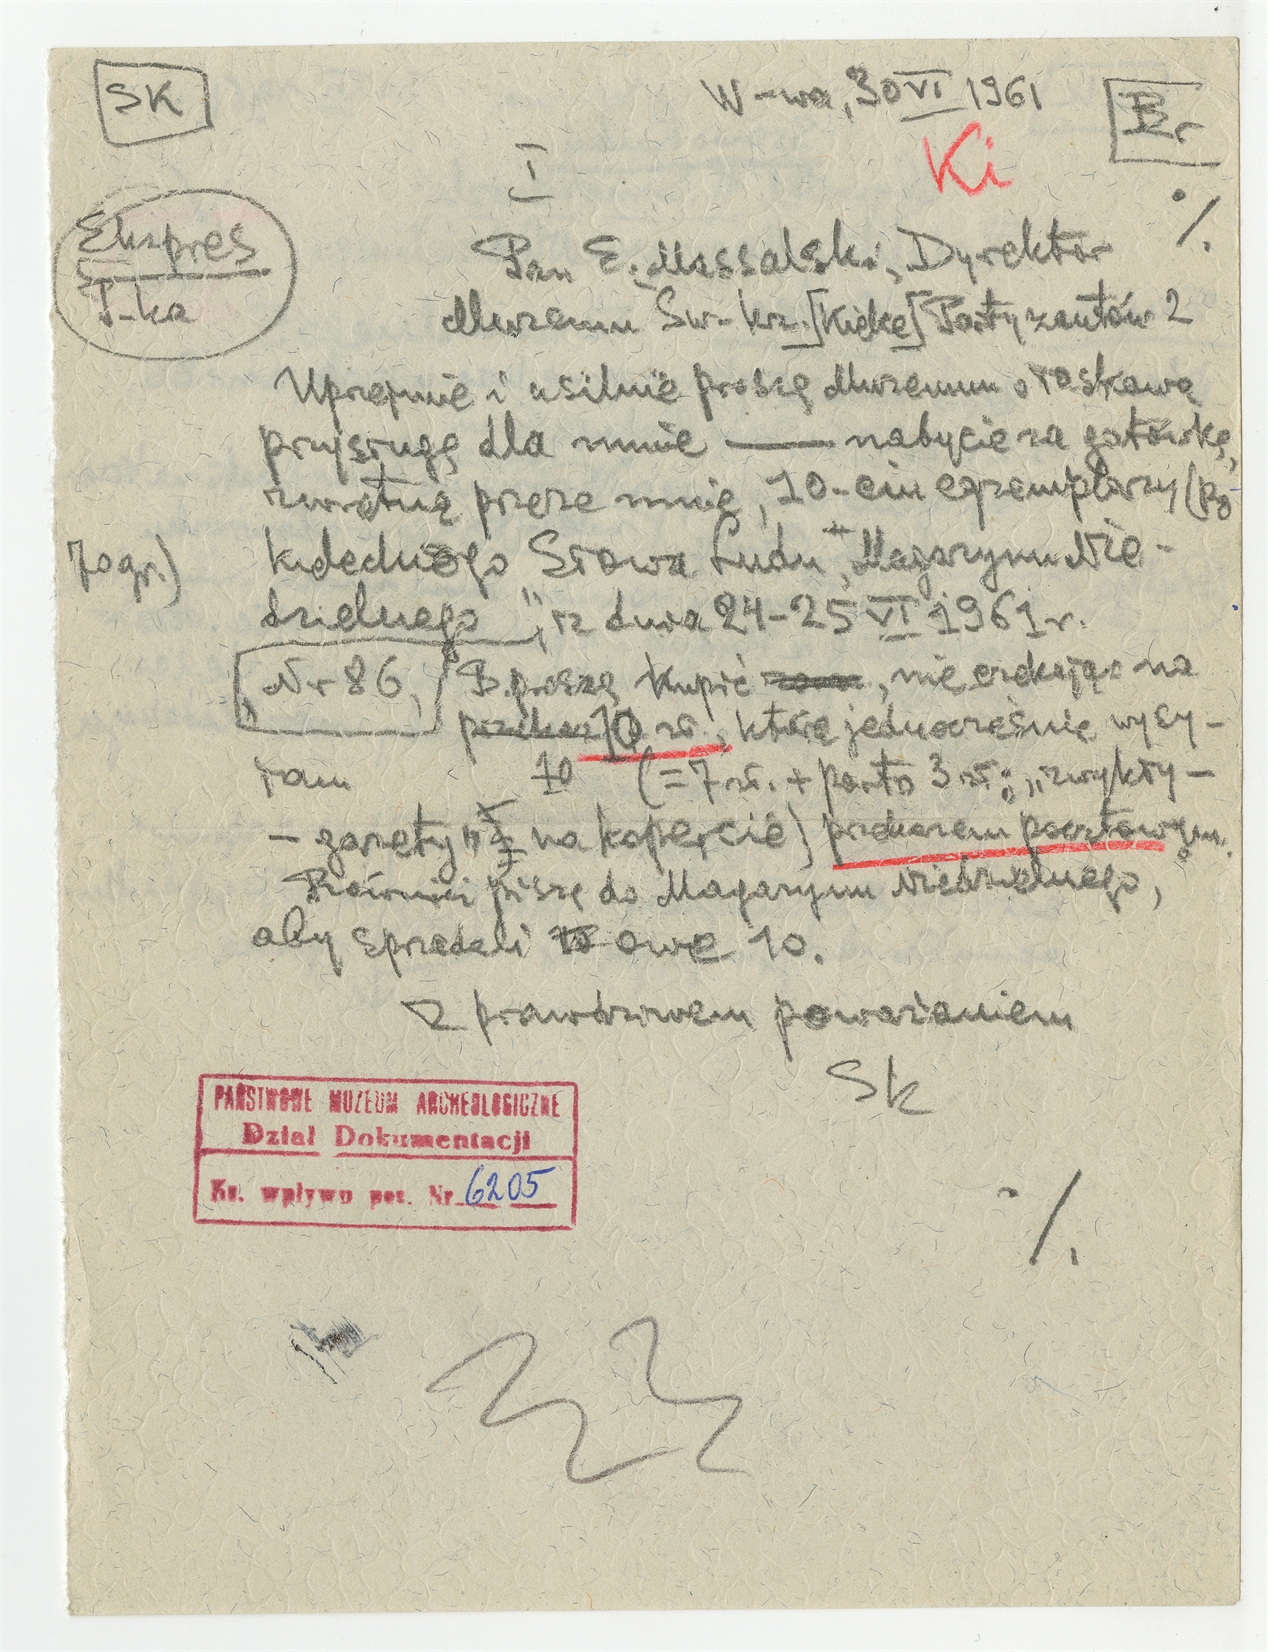 SK
W-wa, 30 VI 1961
Br
Ki
I
%
Ekspres
P-ka
Pan E. Massalski, Dyrektor
Muzeum Św-krz. [Kielce] Partyzantów 2
Uprzejmie i usilnie proszę Muzeum o łaskawą
przysługę dla mnie — nabycie za gotówkę,
zwrotną przeze mnie, 10-ciu egzemplarzy (po
70 gr.) kieleckiego Słowa Ludu, "Magazynu Nie-
dzielnego", z dnia 24-25 VI 1961 r.
Nr 86, B. proszę kupić, nie czekając na
przekaz 10 zł., które jednocześnie wysy-
łam 10 (= 7 zł. + porto 3 zł; "zwykły-
- gazety" na kopercie) przekazem pocztowym.
Również piszę do Magazynu Niedzielnego,
aby sprzedali owe 10.
Z prawdziwem poważaniem
Sk
PAŃSTWOWE MUZEUM ARCHEOLOGICZNE
Dział Dokumentacji
Ks. wpływu poz. Nr 6205
%